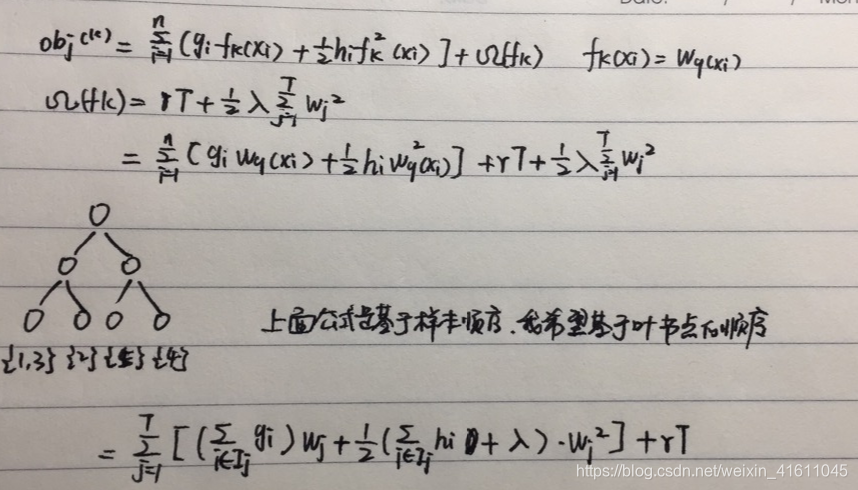 obj^(k) = Σ_{i=1}^{n} [g_i f_k(x_i) + ½ h_i f_k²(x_i)] + Ω(f_k)   f_k(x_i) = W_q(x_i)
Ω(f_k) = γT + ½ λ Σ_{j=1}^{T} w_j²
= Σ_{i=1}^{n} [g_i w_q(x_i) + ½ h_i w_q²(x_i)] + γT + ½ λ Σ_{j=1}^{T} w_j²
上面公式是基于样本顺序.我希望基于叶节点的顺序
{1,3} {2} {5} {4}
= Σ_{j=1}^{T} [(Σ_{i∈I_j} g_i) w_j + ½ (Σ_{i∈I_j} h_i + λ)·w_j²] + γT
https://blog.csdn.net/weixin_41611045